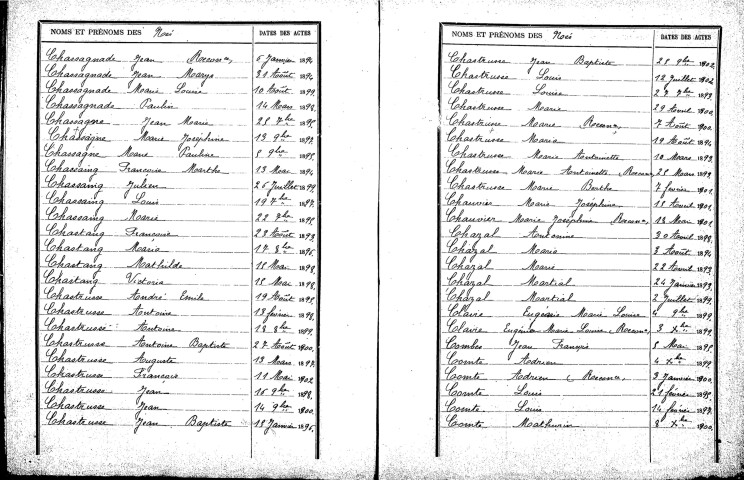 NOMS ET PRÉNOMS DES Nés DATES DES ACTES
Chassagnade Jean Reconn, 5 Janvier 189
Chassagnade Jean Marys 31 Août 189
Chassagnade Marie Louise 10 Août 1899
Chassagnade Paulin 14 Mars 1898
Chassagne Jean Marie 28 7bre 1895
Chassagne Marie Joséphine 13 9bre 1899
Chassagne Marie Pauline 8 9bre 1895
Chassaing Françoise Marthe 13 Mai 1894
Chassaing Julien 25 Juillet 1899
Chassaing Louis 19 7bre 1897
Chassaing Marie 28 7bre 1895
Chastang Françoise 28 Août 1899
Chastang Maria 17 8bre 1896
Chastang Mathilde 18 Mai 1898
Chastang Victoria 18 Mai 1898
Chastrusse André Emile 19 Août 1898
Chastrusse Antoine 13 février 1898
Chastrusse Antoine 18 8bre 1899
Chastrusse Antoine Baptiste 27 Août 1900
Chastrusse Auguste 13 Mars 1897
Chastrusse François 11 Mai 1902
Chastrusse Jean 16 9bre 1898
Chastrusse Jean 14 9bre 1900
Chastrusse Jean Baptiste 13 Janvier 1896
NOMS ET PRÉNOMS DES Nés DATES DES ACTES
Chastrusse Jean Baptiste 28 9bre 1902
Chastrusse Louis 12 Juillet 1902
Chastrusse Louise 27 7bre 1899
Chastrusse Marie 29 Avril 1900
Chastrusse Marie Reconn, 7 Août 1900
Chastrusse Maria 19 Août 1894
Chastrusse Marie Antoinette 10 Mars 1899
Chastrusse Marie Antoinette Reconn, 28 Mars 1899
Chastrusse Marie Berthe 7 février 1901
Chauvier Marie Joséphine 18 Avril 1901
Chauvier Marie Joséphine Reconn, 13 Mai 1901
Chazal Antonine 30 Avril 1898
Chazal Marie 3 Août 1894
Chazal Marie 22 Avril 1899
Chazal Martial 24 Janvier 1893
Chazal Martial 2 Juillet 1899
Clavie Eugénie Marie Louise 4 9bre 1899
Clavie Eugénie Marie Louise Reconn, 3 Xbre 1899
Combes Jean François 8 Mai 1895
Comte Adrien 4 Xbre 1899
Comte Adrien (Reconn, 3 Janvier 1900
Comte Louis 21 février 1895
Comte Louis 14 février 1897
Comte Mathurin 8 Xbre 1900